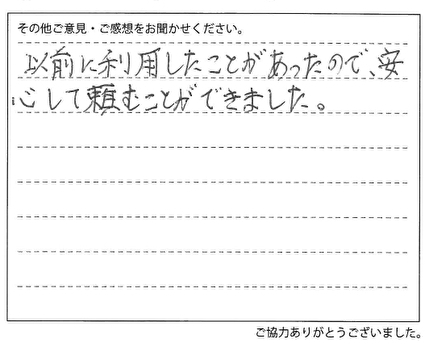 その他ご意見・ご感想をお聞かせください。
以前に利用したことがあったので、安
心して頼むことができました。
ご協力ありがとうございました。